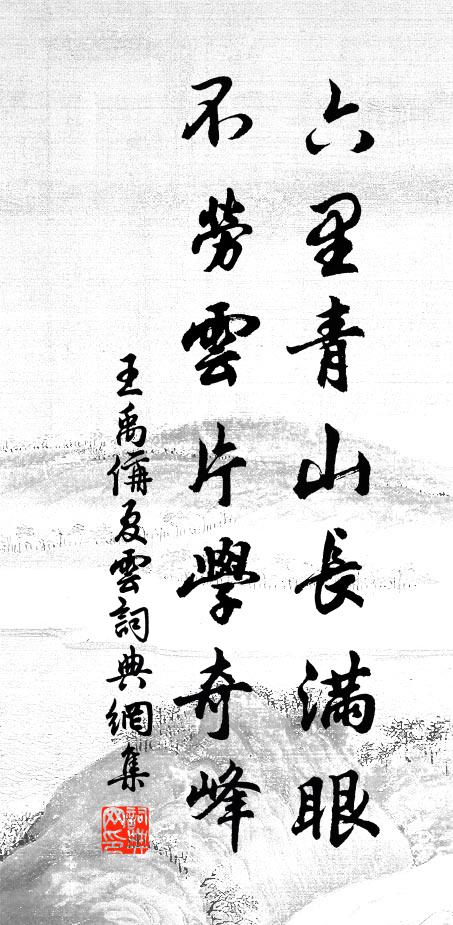 六里青山長滿眼
不勞雲片學奇峰
王禹偁夏雲詞典網集
詞典网印